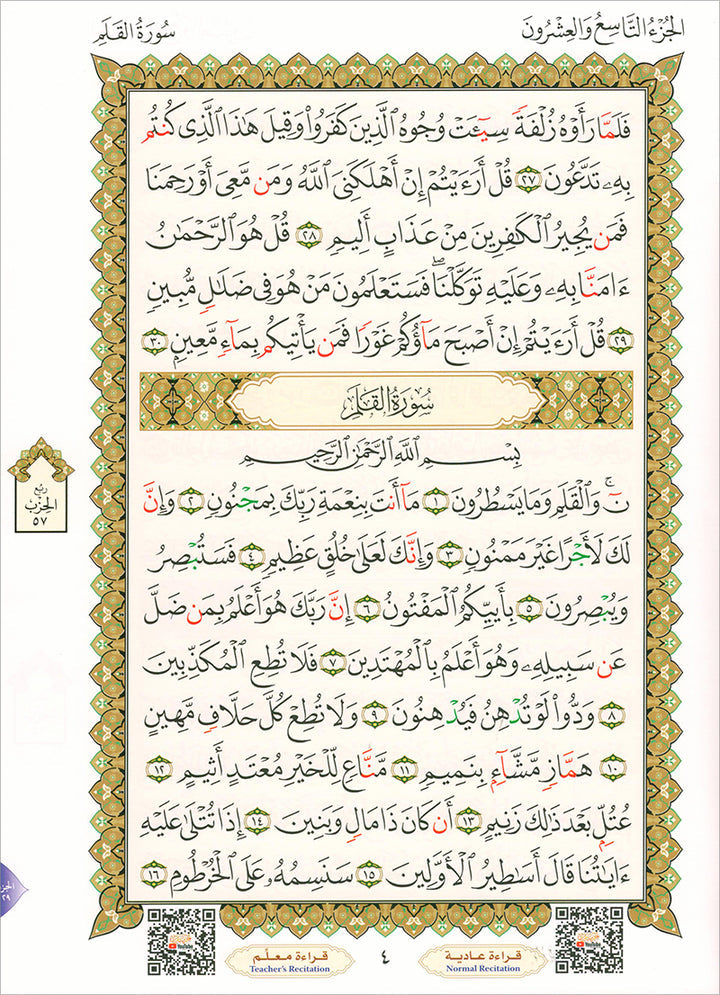 الجُزْءُ التَّاسِعُ وَالعِشْرُونَ
سُورَةُ القَلَمِ
فَلَمَّا رَأَوْهُ زُلْفَةً سِيٓـَٔتْ وُجُوهُ ٱلَّذِينَ كَفَرُواْ وَقِيلَ هَٰذَا ٱلَّذِى كُنتُم
بِهِۦ تَدَّعُونَ ٢٧ قُلْ أَرَءَيْتُمْ إِنْ أَهْلَكَنِىَ ٱللَّهُ وَمَن مَّعِىَ أَوْ رَحِمَنَا
فَمَن يُجِيرُ ٱلْكَٰفِرِينَ مِنْ عَذَابٍ أَلِيمٍ ٢٨ قُلْ هُوَ ٱلرَّحْمَٰنُ
ءَامَنَّا بِهِۦ وَعَلَيْهِ تَوَكَّلْنَاۖ فَسَتَعْلَمُونَ مَنْ هُوَ فِى ضَلَٰلٍ مُّبِينٍ
٢٩ قُلْ أَرَءَيْتُمْ إِنْ أَصْبَحَ مَآؤُكُمْ غَوْرًا فَمَن يَأْتِيكُم بِمَآءٍ مَّعِينٍ ٣٠
سُورَةُ القَلَمِ
بِسْمِ ٱللَّهِ ٱلرَّحْمَٰنِ ٱلرَّحِيمِ
نٓۚ وَٱلْقَلَمِ وَمَا يَسْطُرُونَ ١ مَآ أَنتَ بِنِعْمَةِ رَبِّكَ بِمَجْنُونٍ ٢ وَإِنَّ
لَكَ لَأَجْرًا غَيْرَ مَمْنُونٍ ٣ وَإِنَّكَ لَعَلَىٰ خُلُقٍ عَظِيمٍ ٤ فَسَتُبْصِرُ
وَيُبْصِرُونَ ٥ بِأَييِّكُمُ ٱلْمَفْتُونُ ٦ إِنَّ رَبَّكَ هُوَ أَعْلَمُ بِمَن ضَلَّ
عَن سَبِيلِهِۦ وَهُوَ أَعْلَمُ بِٱلْمُهْتَدِينَ ٧ فَلَا تُطِعِ ٱلْمُكَذِّبِينَ
٨ وَدُّواْ لَوْ تُدْهِنُ فَيُدْهِنُونَ ٩ وَلَا تُطِعْ كُلَّ حَلَّافٍ مَّهِينٍ
١٠ هَمَّازٍ مَّشَّآءٍۭ بِنَمِيمٍ ١١ مَّنَّاعٍ لِّلْخَيْرِ مُعْتَدٍ أَثِيمٍ ١٢
عُتُلٍّۭ بَعْدَ ذَٰلِكَ زَنِيمٍ ١٣ أَن كَانَ ذَا مَالٍ وَبَنِينَ ١٤ إِذَا تُتْلَىٰ عَلَيْهِ
ءَايَٰتُنَا قَالَ أَسَٰطِيرُ ٱلْأَوَّلِينَ ١٥ سَنَسِمُهُۥ عَلَى ٱلْخُرْطُومِ ١٦
ربع
الحزب
٥٧
الجزء
٢٩
قراءة عادية
Normal Recitation
٤
قراءة معلّم
Teacher's Recitation
YouTube
YouTube